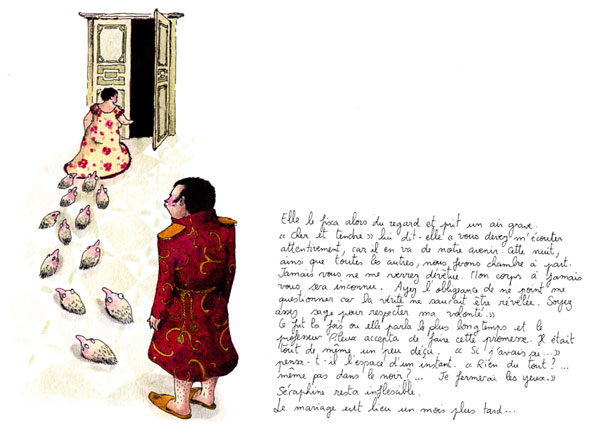 Elle le fixa alors du regard et prit un air grave.
« Cher et tendre » lui dit-elle « vous devez m'écouter
attentivement, car il en va de notre avenir. Cette nuit,
ainsi que toutes les autres, nous ferons chambre à part.
Jamais vous ne me verrez dévêtue. Mon corps à jamais
vous sera inconnu. Ayez l'obligeance de ne point me
questionner car la vérité ne saurait être révélée. Soyez
assez sage pour respecter ma volonté. »
Ce fut la fois où elle parla le plus longtemps et le
professeur accepta de faire cette promesse. Il était
tout de même un peu déçu. « Si j'avais su... »
pensa-t-il l'espace d'un instant. « Rien du tout ?...
même pas dans le noir ?... Je fermerai les yeux. »
Séraphine resta inflexible.
Le mariage eut lieu un mois plus tard...